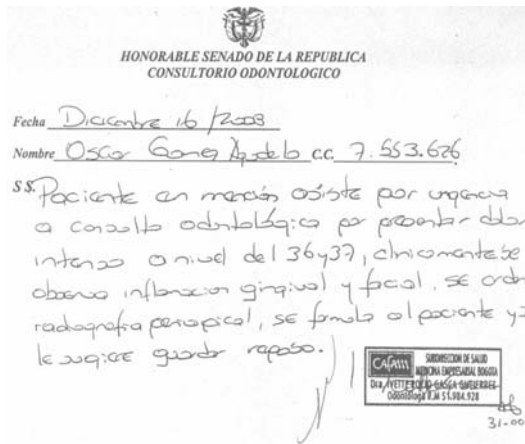 HONORABLE SENADO DE LA REPUBLICA
CONSULTORIO ODONTOLOGICO
Fecha Diciembre 16/2003
Nombre Oscar Gomez Agudelo c.c. 7.553.626
S S. Paciente en mención asiste por urgencia
a consulta odontológica por presentar dolor
intenso a nivel del 36y37, clinicamente se
observa inflamacion gingival y facial, se orde
radiografia periapical, se formula al paciente y s
le sugiere guardar reposo.
Cafam SUBDIRECCION DE SALUD
MEDICINA EMPRESARIAL BOGOTA
Dra. IVETTE GASCA
Odontóloga R.M 51.984.928
31-00